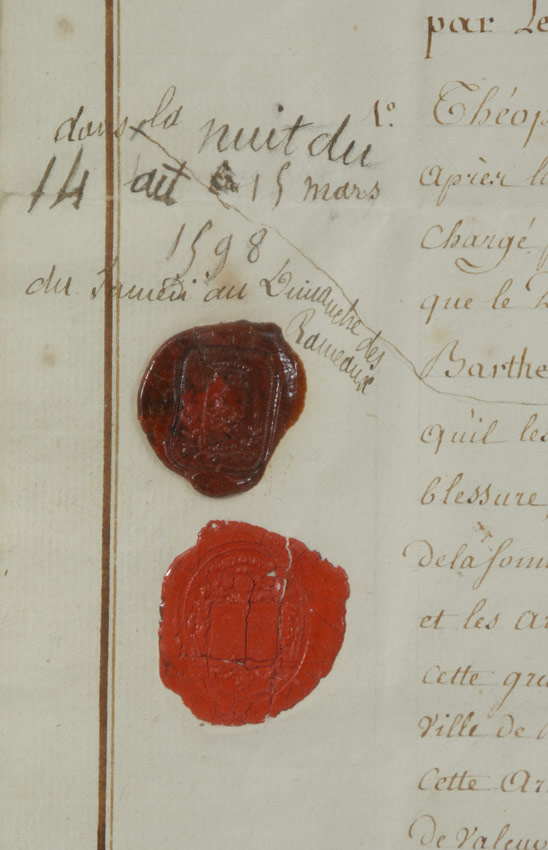 dans la nuit du
14 au 15 mars
1598
du Samedi au Dimanche des
Rameaux
par Le
1º Théop
après la
chargé p
que le
Barthe
qu'il les
blessure,
de la som
et les ar
cette gra
ville de
cette Ar
de valeur